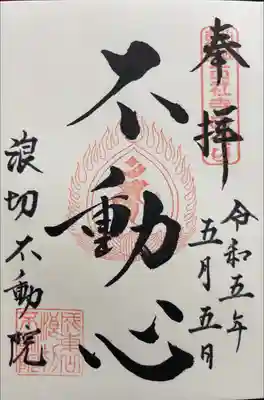 奉拝
令和五年
五月五日
不動心
浪切不動院